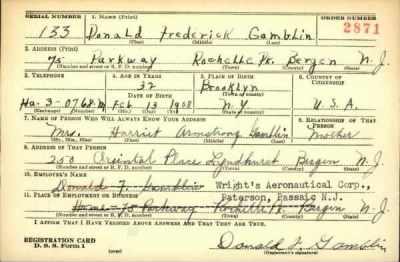 SERIAL NUMBER 1. NAME (Print) ORDER NUMBER
133 Donald Frederick Gamblin 2871
(First) (Middle) (Last)
2. ADDRESS (Print)
75 Parkway Rochelle Pk. Bergen N.J.
(Number and street or R. F. D. number) (Town) (County) (State)
3. TELEPHONE 4. AGE IN YEARS 5. PLACE OF BIRTH 6. COUNTRY OF CITIZENSHIP
32 Brooklyn
DATE OF BIRTH (Town or county)
Ha. 3-0768-M Feb 13 1908 N.Y. U.S.A.
(Exchange) (Mo.) (Day) (Yr.) (State or country)
7. NAME OF PERSON WHO WILL ALWAYS KNOW YOUR ADDRESS 8. RELATIONSHIP OF THAT PERSON
Mrs. Harriet Armstrong Gamblin Mother
(Mr., Mrs., Miss) (First) (Middle) (Last)
9. ADDRESS OF THAT PERSON
250 Oriental Place Lyndhurst Bergen N.J.
(Number and street or R. F. D. number) (Town) (County) (State)
10. EMPLOYER'S NAME
Donald F. Gamblin Wright's Aeronautical Corp.,
11. PLACE OF EMPLOYMENT OR BUSINESS Paterson, Passaic N.J.
Home 75 Parkway Rochelle Pk. Bergen N.J.
(Number and street or R. F. D. number) (Town) (County) (State)
I AFFIRM THAT I HAVE VERIFIED ABOVE ANSWERS AND THAT THEY ARE TRUE.
REGISTRATION CARD
D. S. S. Form 1 Donald F. Gamblin
(Registrant's signature)